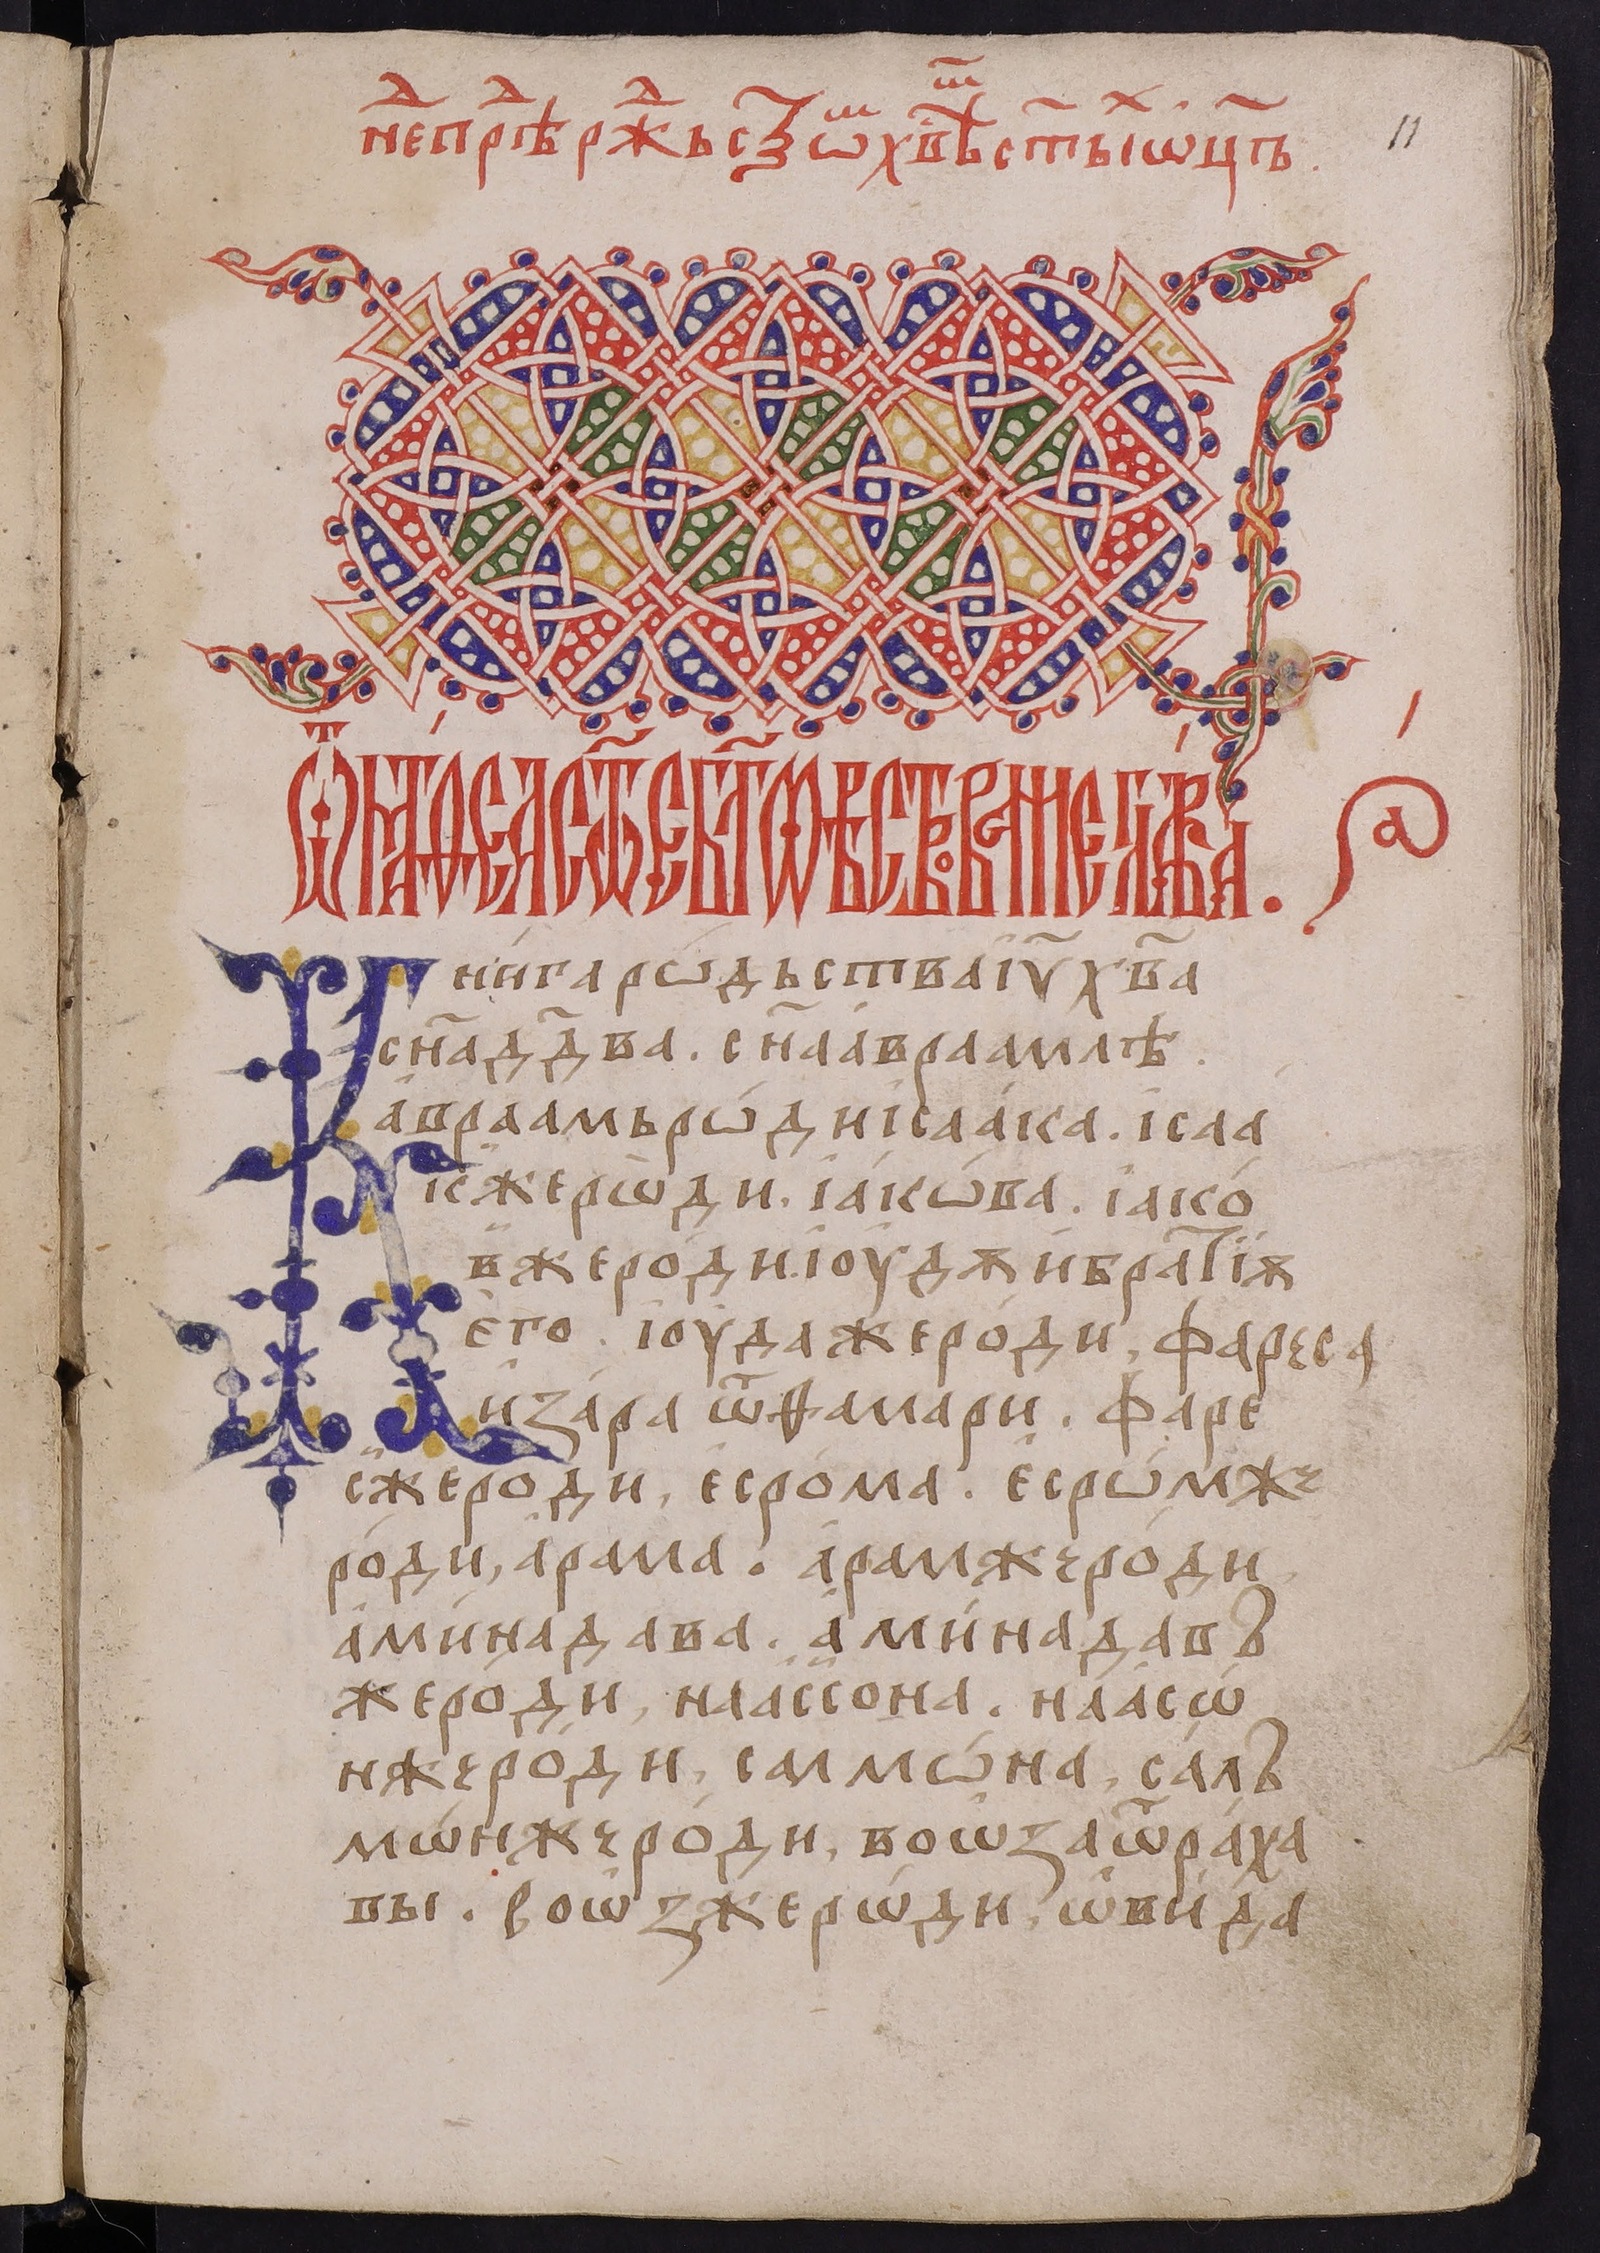 не́д прѣⷣ рж҃ⷣьс з ѿ х҃вѣхь ст҃ыⷯ ѡ҃цъ.
11
Ѿ маѳеа ст҃ое бл҃говѣствованїе глава
а҃
Кни́га рѡ́дьства і҆у҃ х҃ва
сн҃а дв҃да. сн҃а а҆враамлѣ.
а҆враамь рѡ́ди і҆саа́ка. і҆саа
к же рѡди. і҆а́кѡ́ва. і҆ако́
в же ро́ди. і҆оу́дѫ и҆ братїѫ
е҆го. і҆оу́да же ро́ди, фаре́са
и҆ за́ра ѿ ѳамари. фаре
с же роди, есро́ма. е҆срѡ́м же
ро́ди, а҆рама. а҆рам же ро́ди
а҆ми́надава. а҆ми́надавъ
же ро́ди, наассо́на. наасѡ́
н же ро́ди, салмѡ́на, са́лъ
мѡ́н же ро́ди, воѡ́за ѿ ра́ха
вы. воѡ́з же рѡ́ди, ѡ҆ви́да